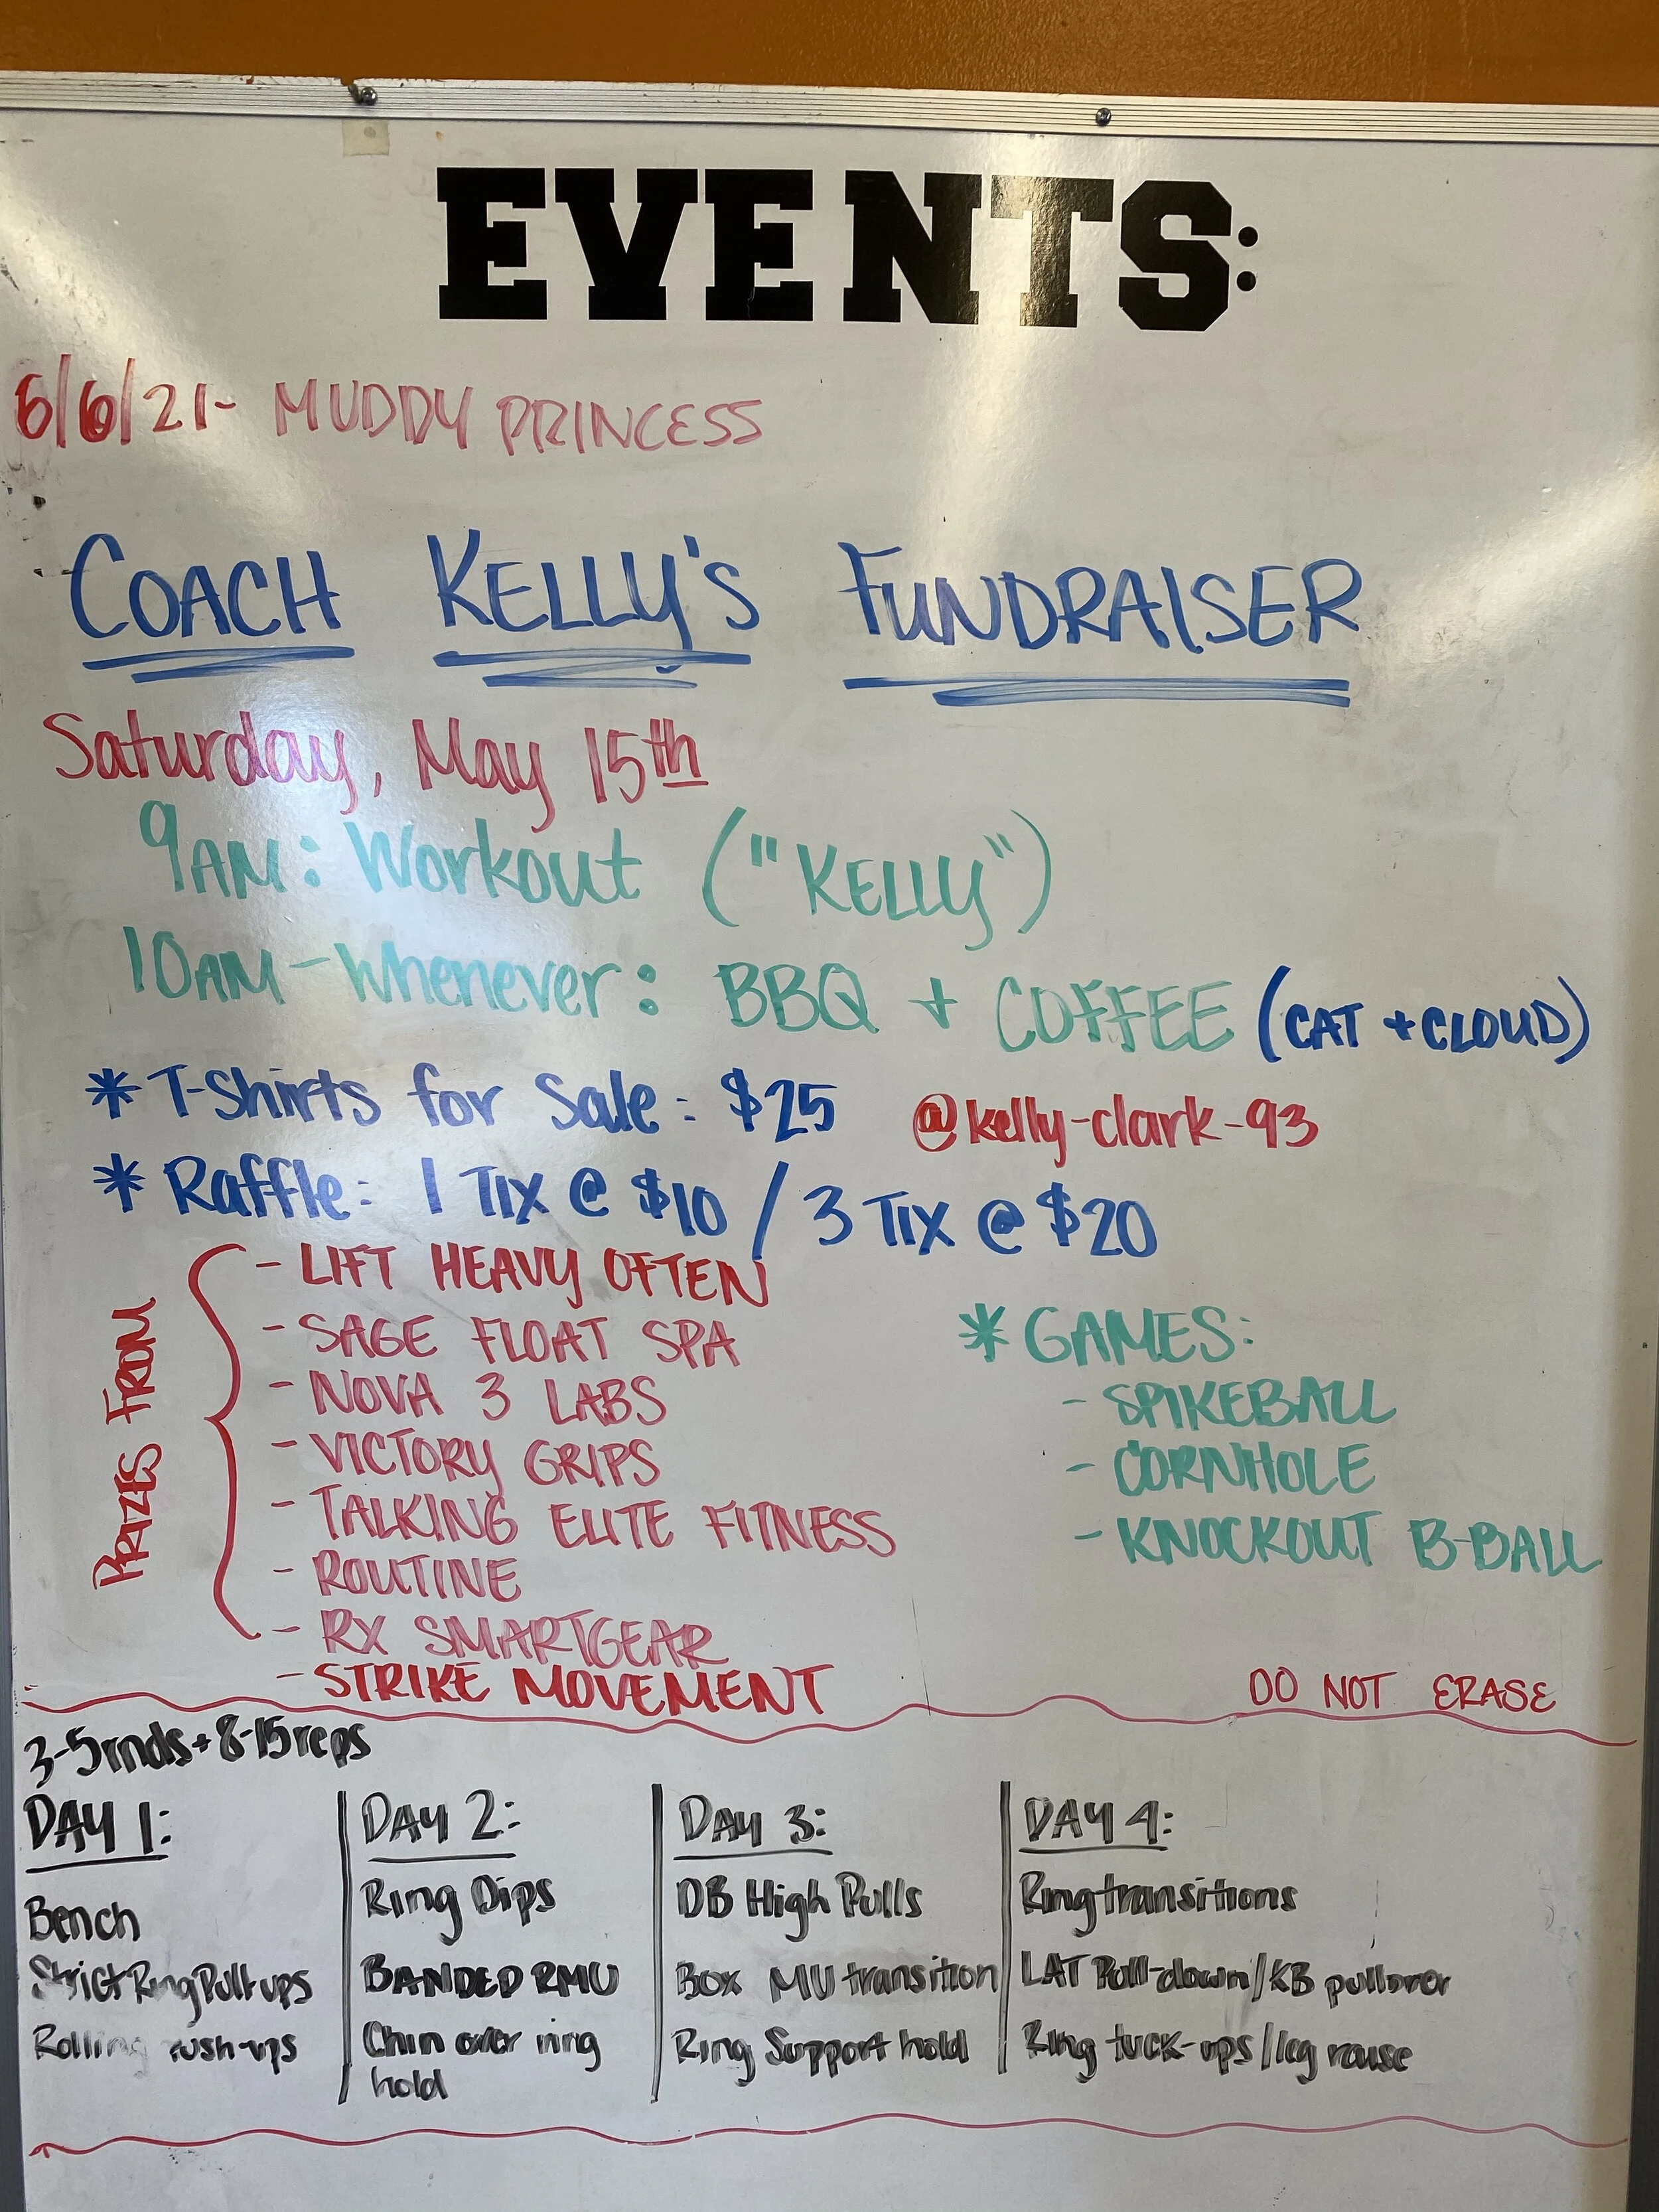 EVENTS:
6/6/21- MUDDY PRINCESS
COACH KELLY'S FUNDRAISER
Saturday, May 15th
9AM: Workout ("KELLY")
10AM-Whenever: BBQ + COFFEE (CAT + CLOUD)
* T-Shirts for Sale: $25 @kelly-clark-93
* Raffle: 1 TIX @ $10 / 3 TIX @ $20
PRIZES FROM
- LIFT HEAVY OFTEN
- SAGE FLOAT SPA
- NOVA 3 LABS
- VICTORY GRIPS
- TALKING ELITE FITNESS
- ROUTINE
- RX SMARTGEAR
- STRIKE MOVEMENT
* GAMES:
- SPIKEBALL
- CORNHOLE
- KNOCKOUT B-BALL
DO NOT ERASE
3-5 rnds + 8-15 reps
DAY 1:
Bench
Strict Ring Pull ups
Rolling push-ups
DAY 2:
Ring Dips
BANDED RMU
Chin over ring
hold
DAY 3:
DB High Pulls
Box MU transition
Ring Support hold
DAY 4:
Ring transitions
LAT Pull-down/KB pullover
Ring tuck-ups/leg raise